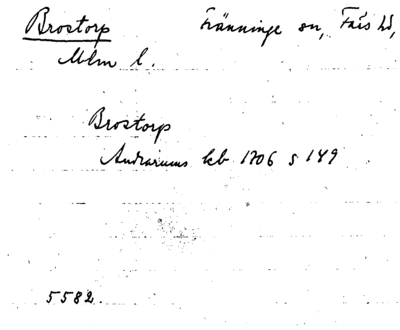 Brostorp Tränninge sn, Färs hd,
Mlm l.
Brostorp
Andrarums kb 1706 s 149
5582.